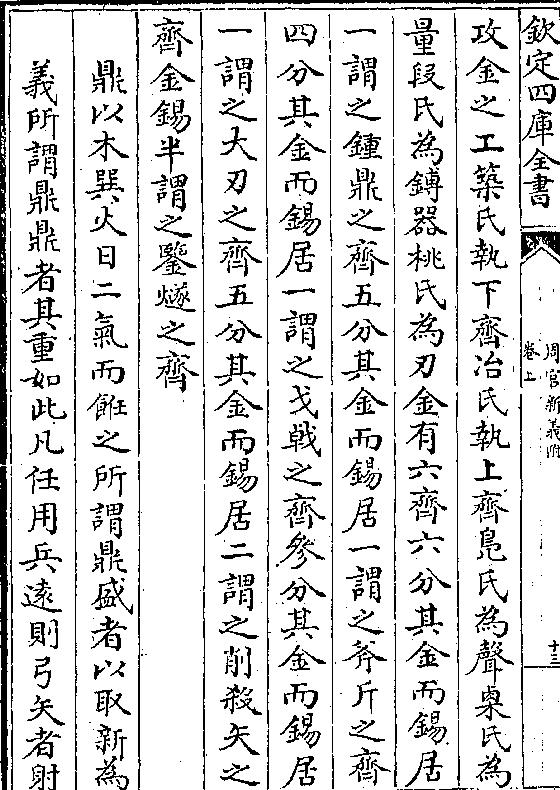 欽定四庫全書
周官新義附
卷上
十三
攻金之工築氏執下齊冶氏執上齊鳧氏為聲㮚氏為
量段氏為鎛器桃氏為刃金有六齊六分其金而錫居
一謂之鍾鼎之齊五分其金而錫居一謂之斧斤之齊
四分其金而錫居一謂之戈戟之齊參分其金而錫居
一謂之大刃之齊五分其金而錫居二謂之削殺矢之
齊金錫半謂之鑒燧之齊
鼎以木巽火日二氣而飪之所謂鼎盛者以取新為
義所謂鼎鼎者其重如此凡任用兵逺則弓矢者射